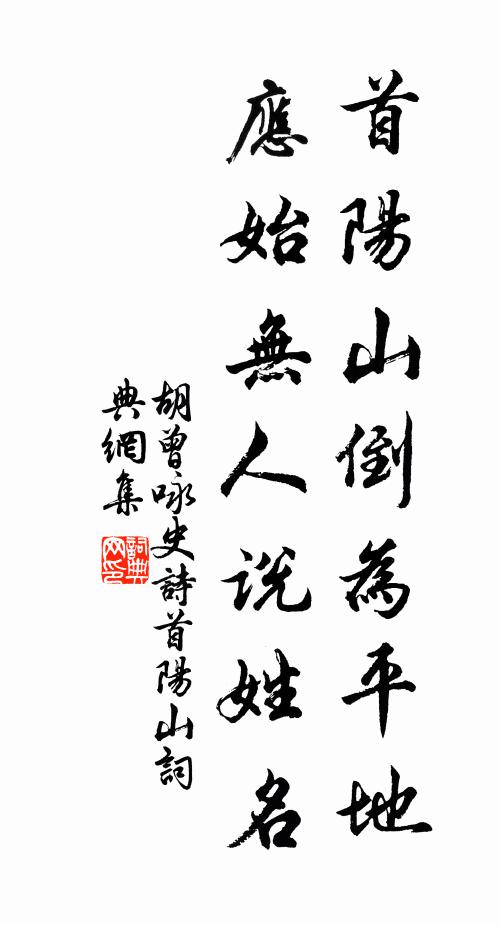 首陽山倒為平地
應始無人說姓名
胡曾咏史詩首陽山詞
典網集
詞典网印